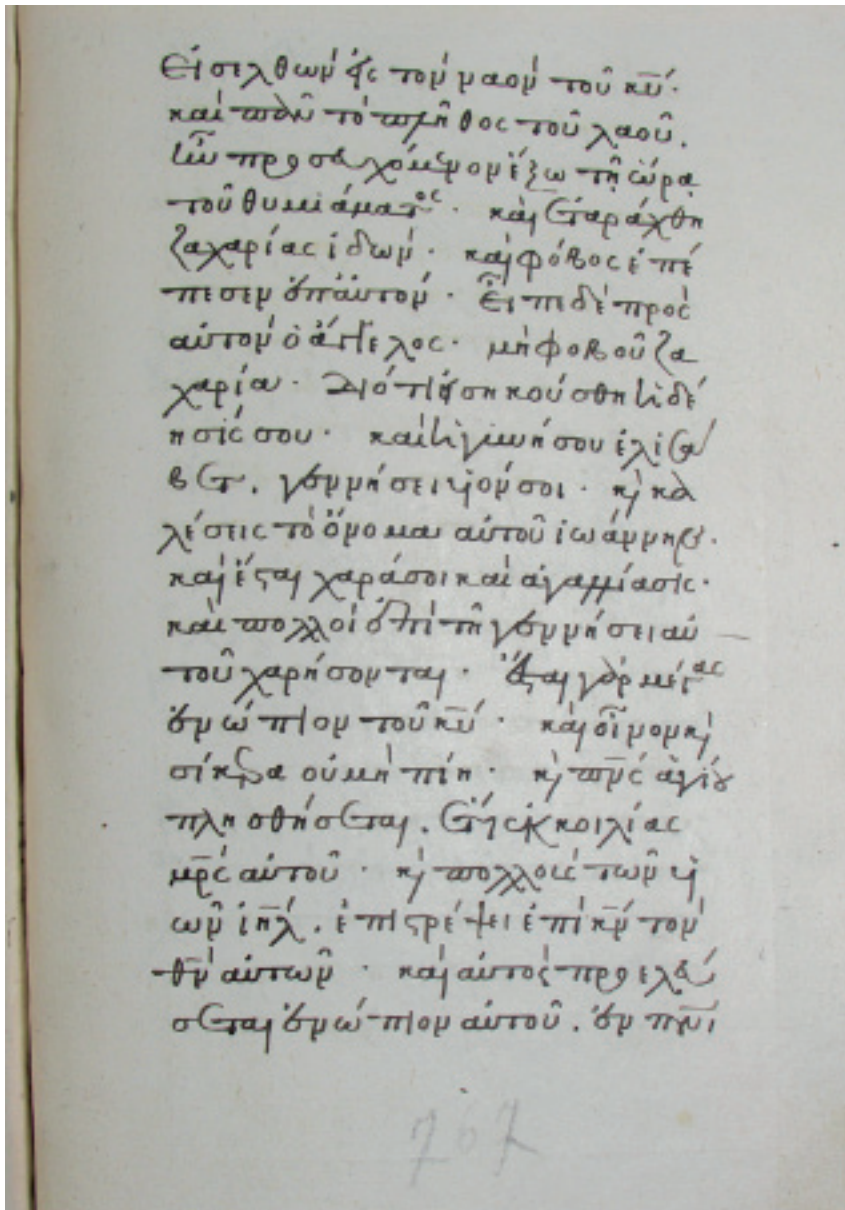 Εἰσελθών εἰς τόν ναόν τοῦ κ̅υ̅·
καί πᾶν τό πλῆθος τοῦ λαοῦ.
ἦν προσευχόμενον ἔξω τῇ ὥρᾳ
τοῦ θυμιάματος· καί ἐταράχθη
ζαχαρίας ἰδών· καί φόβος ἐπέ
πεσεν ἐπ αὐτόν· Εἶπε δέ πρός
αὐτόν ὁ ἄγγελος· μή φοβοῦ ζα
χαρία· Διότι εἰσηκούσθη ἡ δέ
ησίς σου· καί ἡ γυνή σου ἐλισα
βετ. γεννήσει υἱόν σοι· κ̀ κα
λέσεις τό ὄνομα αὐτοῦ ἰωάννην.
καί ἔσται χαρά σοι καί ἀγαλλίασις·
καί πολλοί ἐπί τῇ γεννήσει αὐ
τοῦ χαρήσονται· Ἔσται γάρ μέγας
ἐνώπιον τοῦ κ̅υ̅· καί οἶνον κ̀
σίκερα οὐ μή πίῃ· κ̀ π̅ν̅ς ἁγίου
πλησθήσεται. ἔτι ἐκ κοιλίας
μ̅ρ̅ς αὐτοῦ· κ̀ πολλούς τῶν υἱ
ῶν ἰ̅η̅λ̅. ἐπιστρέψει ἐπί κ̅ν̅ τόν
θ̅ν̅ αὐτῶν· καί αὐτός προελεύ
σεται ἐνώπιον αὐτοῦ. ἐν π̅ν̅ι̅
767